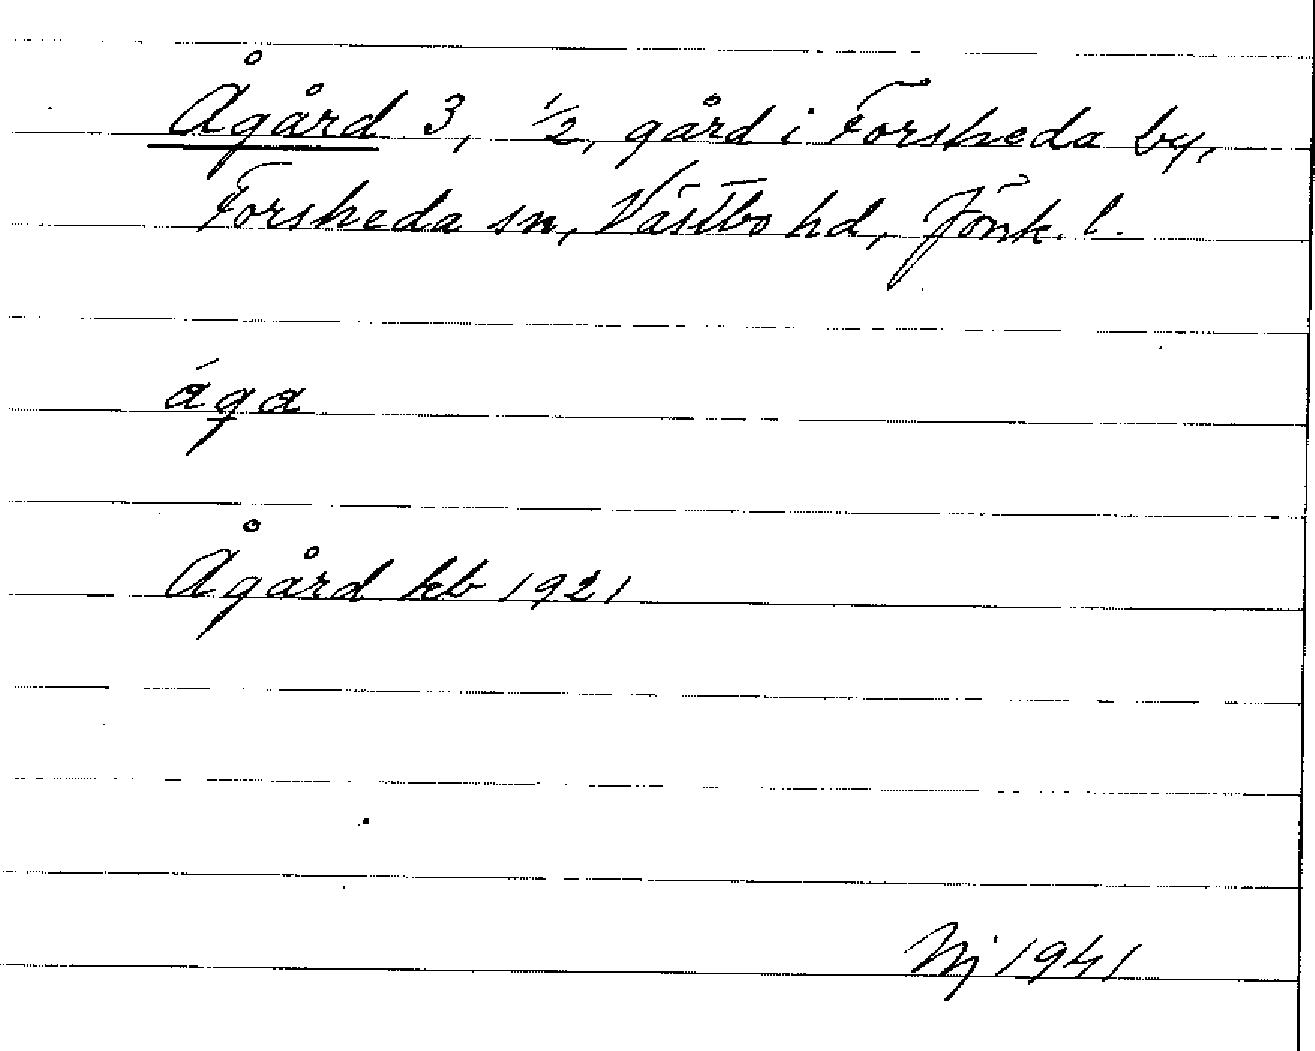 Ågård 3, 1/2, gård i Forsheda by,
Forsheda sn, Västbo hd, Jönk. l.
ága
Ågård kb 1921
Nj 1941